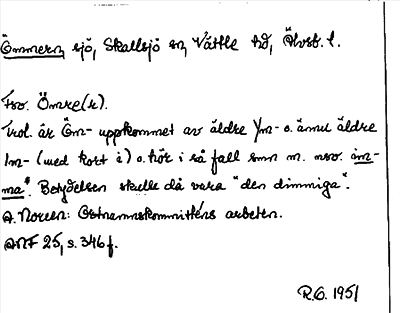 Ömmern, sjö, Skallsjö sn, Vättle hd, Älvsb. l.
Fsv. Ömre(r).
Trol. är Öm- uppkommet av äldre Ym- o. ännu äldre
Im- (med kort i) o. hör i så fall smn m. nsv. im-
ma*. Betydelsen skulle då vara "den dimmiga".
A. Noreen: Ortnamnskommitténs arbeten.
ANF 25, s. 346 f.
R.O. 1951